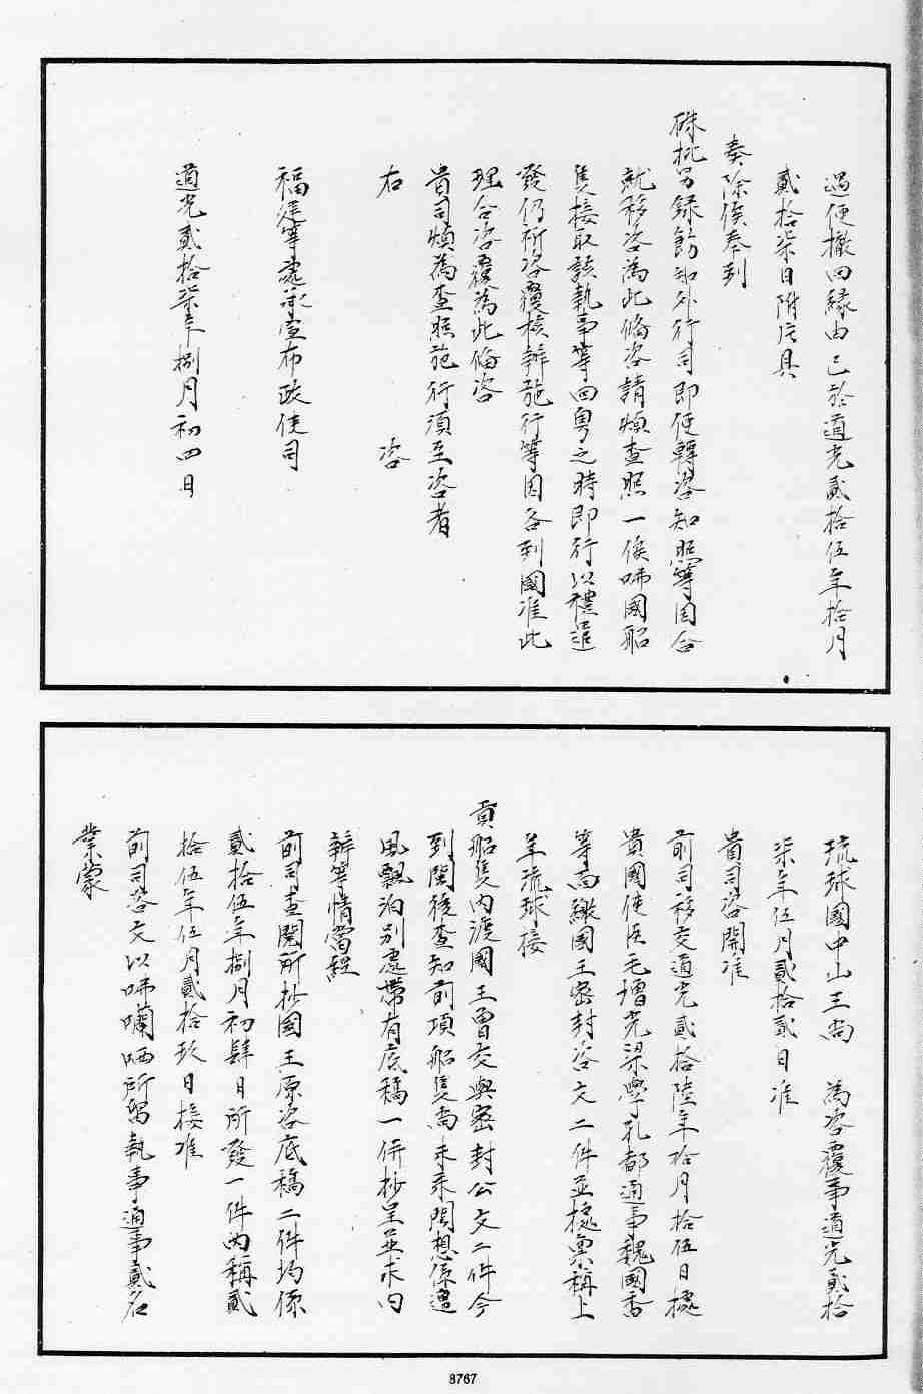 過便撤回緣由已於道光貳拾伍年拾月
貳拾柒日附片具
奏除俟奉到
硃批另錄飭知外行司即便轉咨知照等因合
就移咨為此備咨請煩查照一俟咈國船
隻接取該執事等回粵之時即行以禮遣
發仍祈咨覆核辦施行等因各到國准此
理合咨覆為此備咨
貴司煩為查照施行須至咨者
右　　　　　咨
福建等處承宣布政使司
道光貳拾柒年捌月初四日
琉球國中山王尚　為咨覆事道光貳拾
柒年伍月貳拾貳日准
貴司咨開准
前司移交道光貳拾陸年拾月拾伍日據
貴國使臣毛增光梁學孔都通事魏國香
等而繳國王密封咨文二件並據稟稱上
年琉球接
貢船隻內渡國王曾交與密封公文二件今
到閩後查知前項船隻尚未來閩想係遭
風飄泊別處帶有底稿一併抄呈並求
辦等情當經
前司查閱所抄國王原咨底稿二件均係
貳拾伍年捌月初肆日所發一件內稱貳
拾伍年伍月貳拾玖日接准
前司咨文以咈囒哂所留執事通事貳名
業蒙
8767